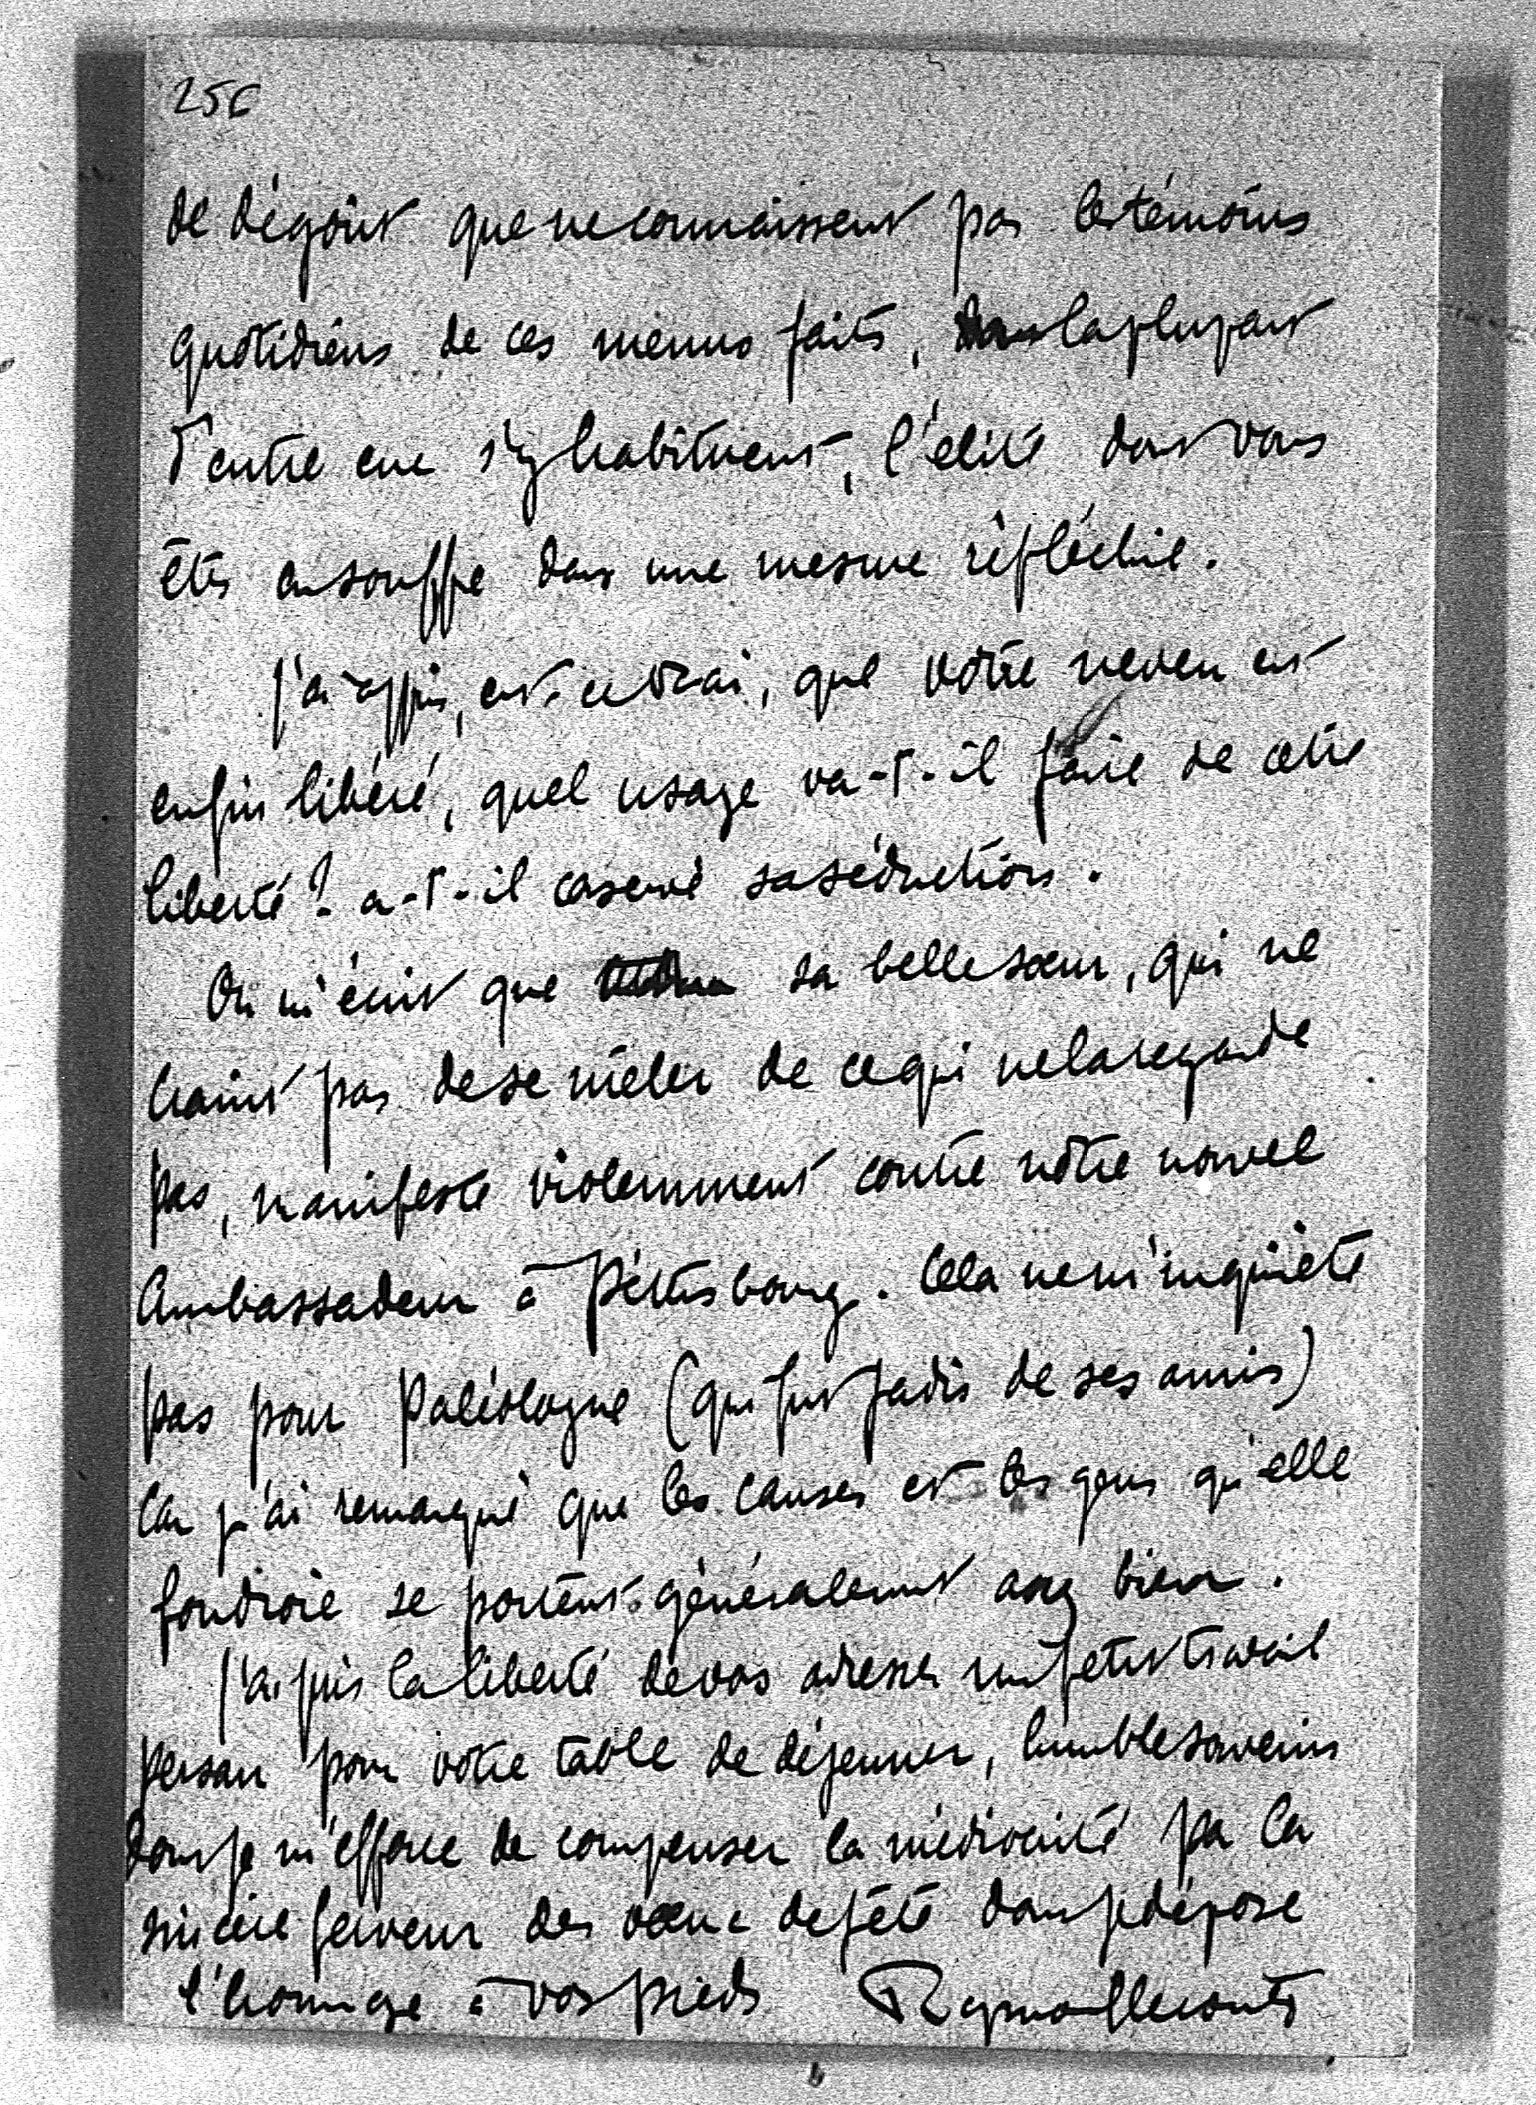 256
de dégoût que ne connaissent pas les témoins
quotidiens de ces menus faits, la plupart
d'entre eux s'y habituent, l'élite dont vous
êtes en souffre dans une mesure réfléchie.
J'ai appris, est-ce vrai, que votre neveu est
enfin libéré, quel usage va-t-il faire de cette
liberté? a-t-il conservé sa séduction.
On m'écrit que sa belle sœur, qui ne
craint pas de se mêler de ce qui ne la regarde
pas, manifeste violemment contre notre nouvel
Ambassadeur à Pétersbourg. Cela ne m'inquiète
pas pour Paléologue (qui fut jadis de ses amis)
Car j'ai remarqué que les causes et les gens qu'elle
foudroie se portent généralement assez bien.
J'ai pris la liberté de vous adresser un petit travail
persan pour votre table de déjeuner, humble souvenir
dont je m'efforce de compenser la médiocité par la
sincère ferveur des vœux de fête dont je dépose
l'hommage à vos pieds Raymond Lecomte